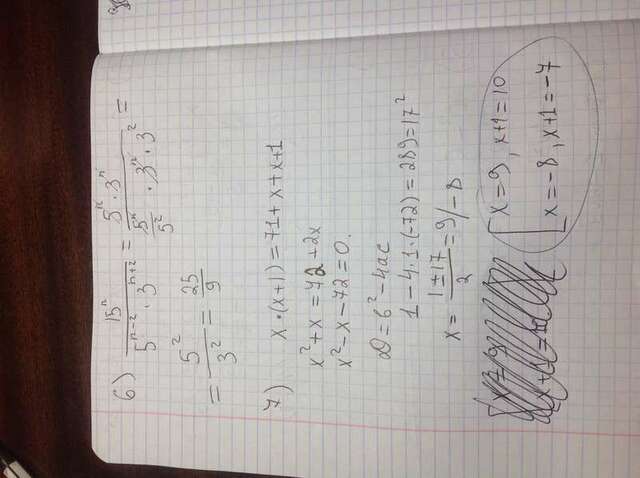 6) 15ⁿ / (5ⁿ⁻² · 3ⁿ⁺²) = (5ⁿ · 3ⁿ) / (5ⁿ/5² · 3ⁿ · 3²) =
= 5² / 3² = 25/9
7) x·(x+1) = 71+x+x+1
x²+x = 72+2x
x²-x-72=0.
D=b²-4ac
1-4·1·(-72) = 289=17²
x = (1±17)/2 = 9/-8
[ x=9, x+1=10
x=-8, x+1=-7